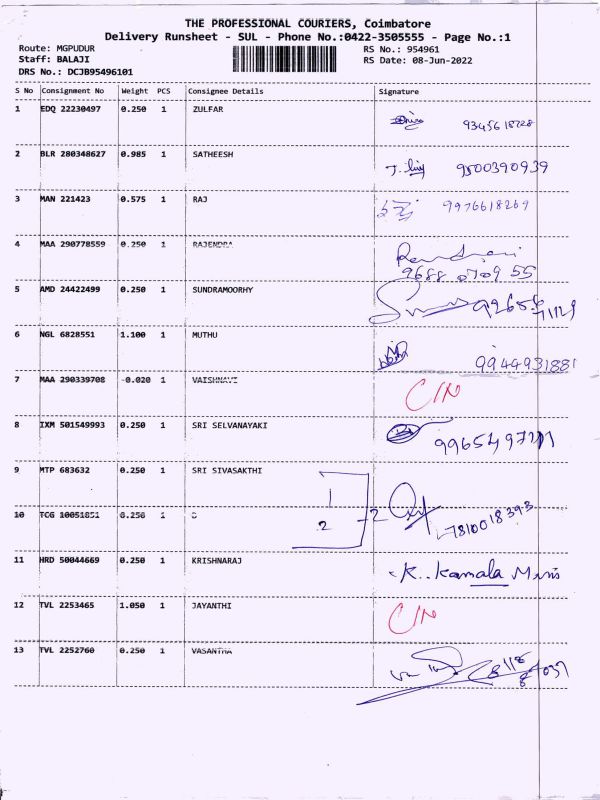 THE PROFESSIONAL COURIERS, Coimbatore
Delivery Runsheet - SUL - Phone No.:0422-3505555 - Page No.:1
Route: MGPUDUR RS No.: 954961
Staff: BALAJI RS Date: 08-Jun-2022
DRS No.: DCJB95496101
S No Consignment No Weight PCS Consignee Details Signature
1 EDQ 22230497 0.250 1 ZULFAR 9345618728
2 BLR 280348627 0.985 1 SATHEESH 9500390939
3 MAN 221423 0.575 1 RAJ 9976618269
4 MAA 290778559 0.250 1 RAJENDRA
9688 0709 55
5 AMD 24422499 0.250 1 SUNDRAMOORHY
6 NGL 6828551 1.100 1 MUTHU 9944931881
7 MAA 290339708 -0.020 1 VAISHNAVI C/N
8 IXM 501549993 0.250 1 SRI SELVANAYAKI
9 MTP 683632 0.250 1 SRI SIVASAKTHI 1
2 -2 7810018393
10 TCG 10051851 0.256 1
11 HRD 50044669 0.250 1 KRISHNARAJ K. Kamala
12 TVL 2253465 1.050 1 JAYANTHI C/N
13 TVL 2252760 0.250 1 VASANTHA